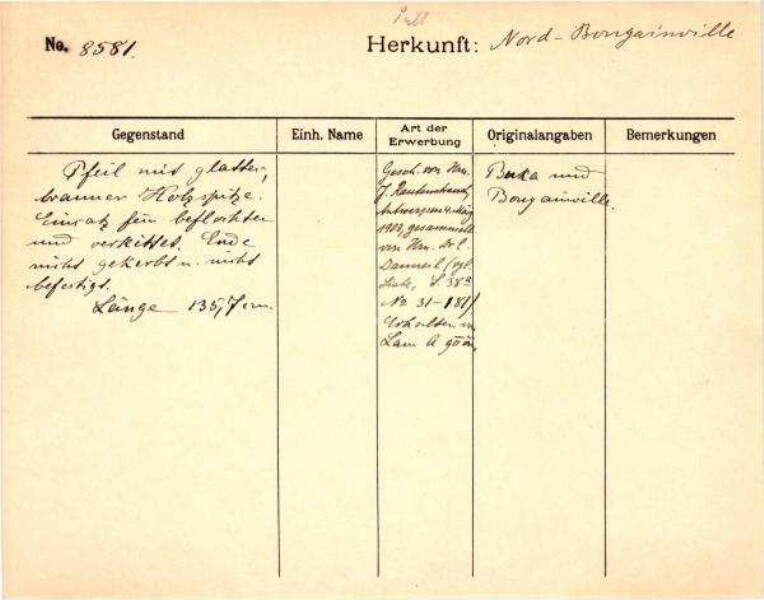 No. 8581.
Herkunft: Nord-Bougainville
Gegenstand
Einh. Name
Art der Erwerbung
Originalangaben
Bemerkungen
Pfeil mit glatter,
brauner Holzspitze.
Einsatz fein beflochten
und verkittet. Ende
nicht gekerbt u. nicht
befestigt.
Länge 135,7 cm.
Gesch. von Hrn.
J. Rautenstrauch,
Antwerpen 4. März
1903, gesammelt
von Hrn. Dr. C.
Danneil (vgl.
Liste, S. 38a
No 31-181)
Erhalten in
Buka und
Bougainville.